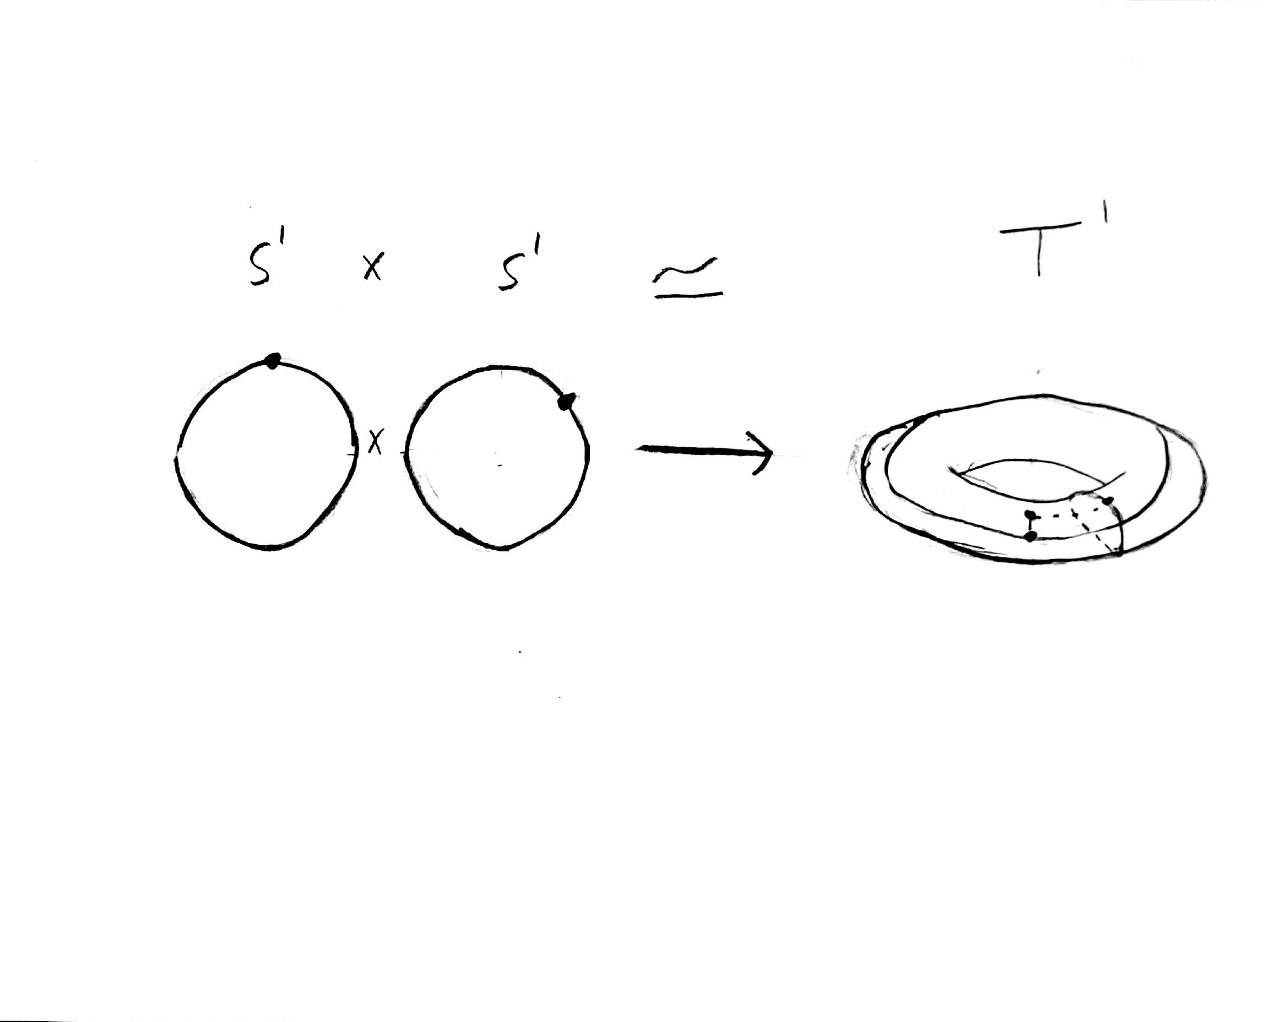 S¹ × S¹ ≃ T¹
×